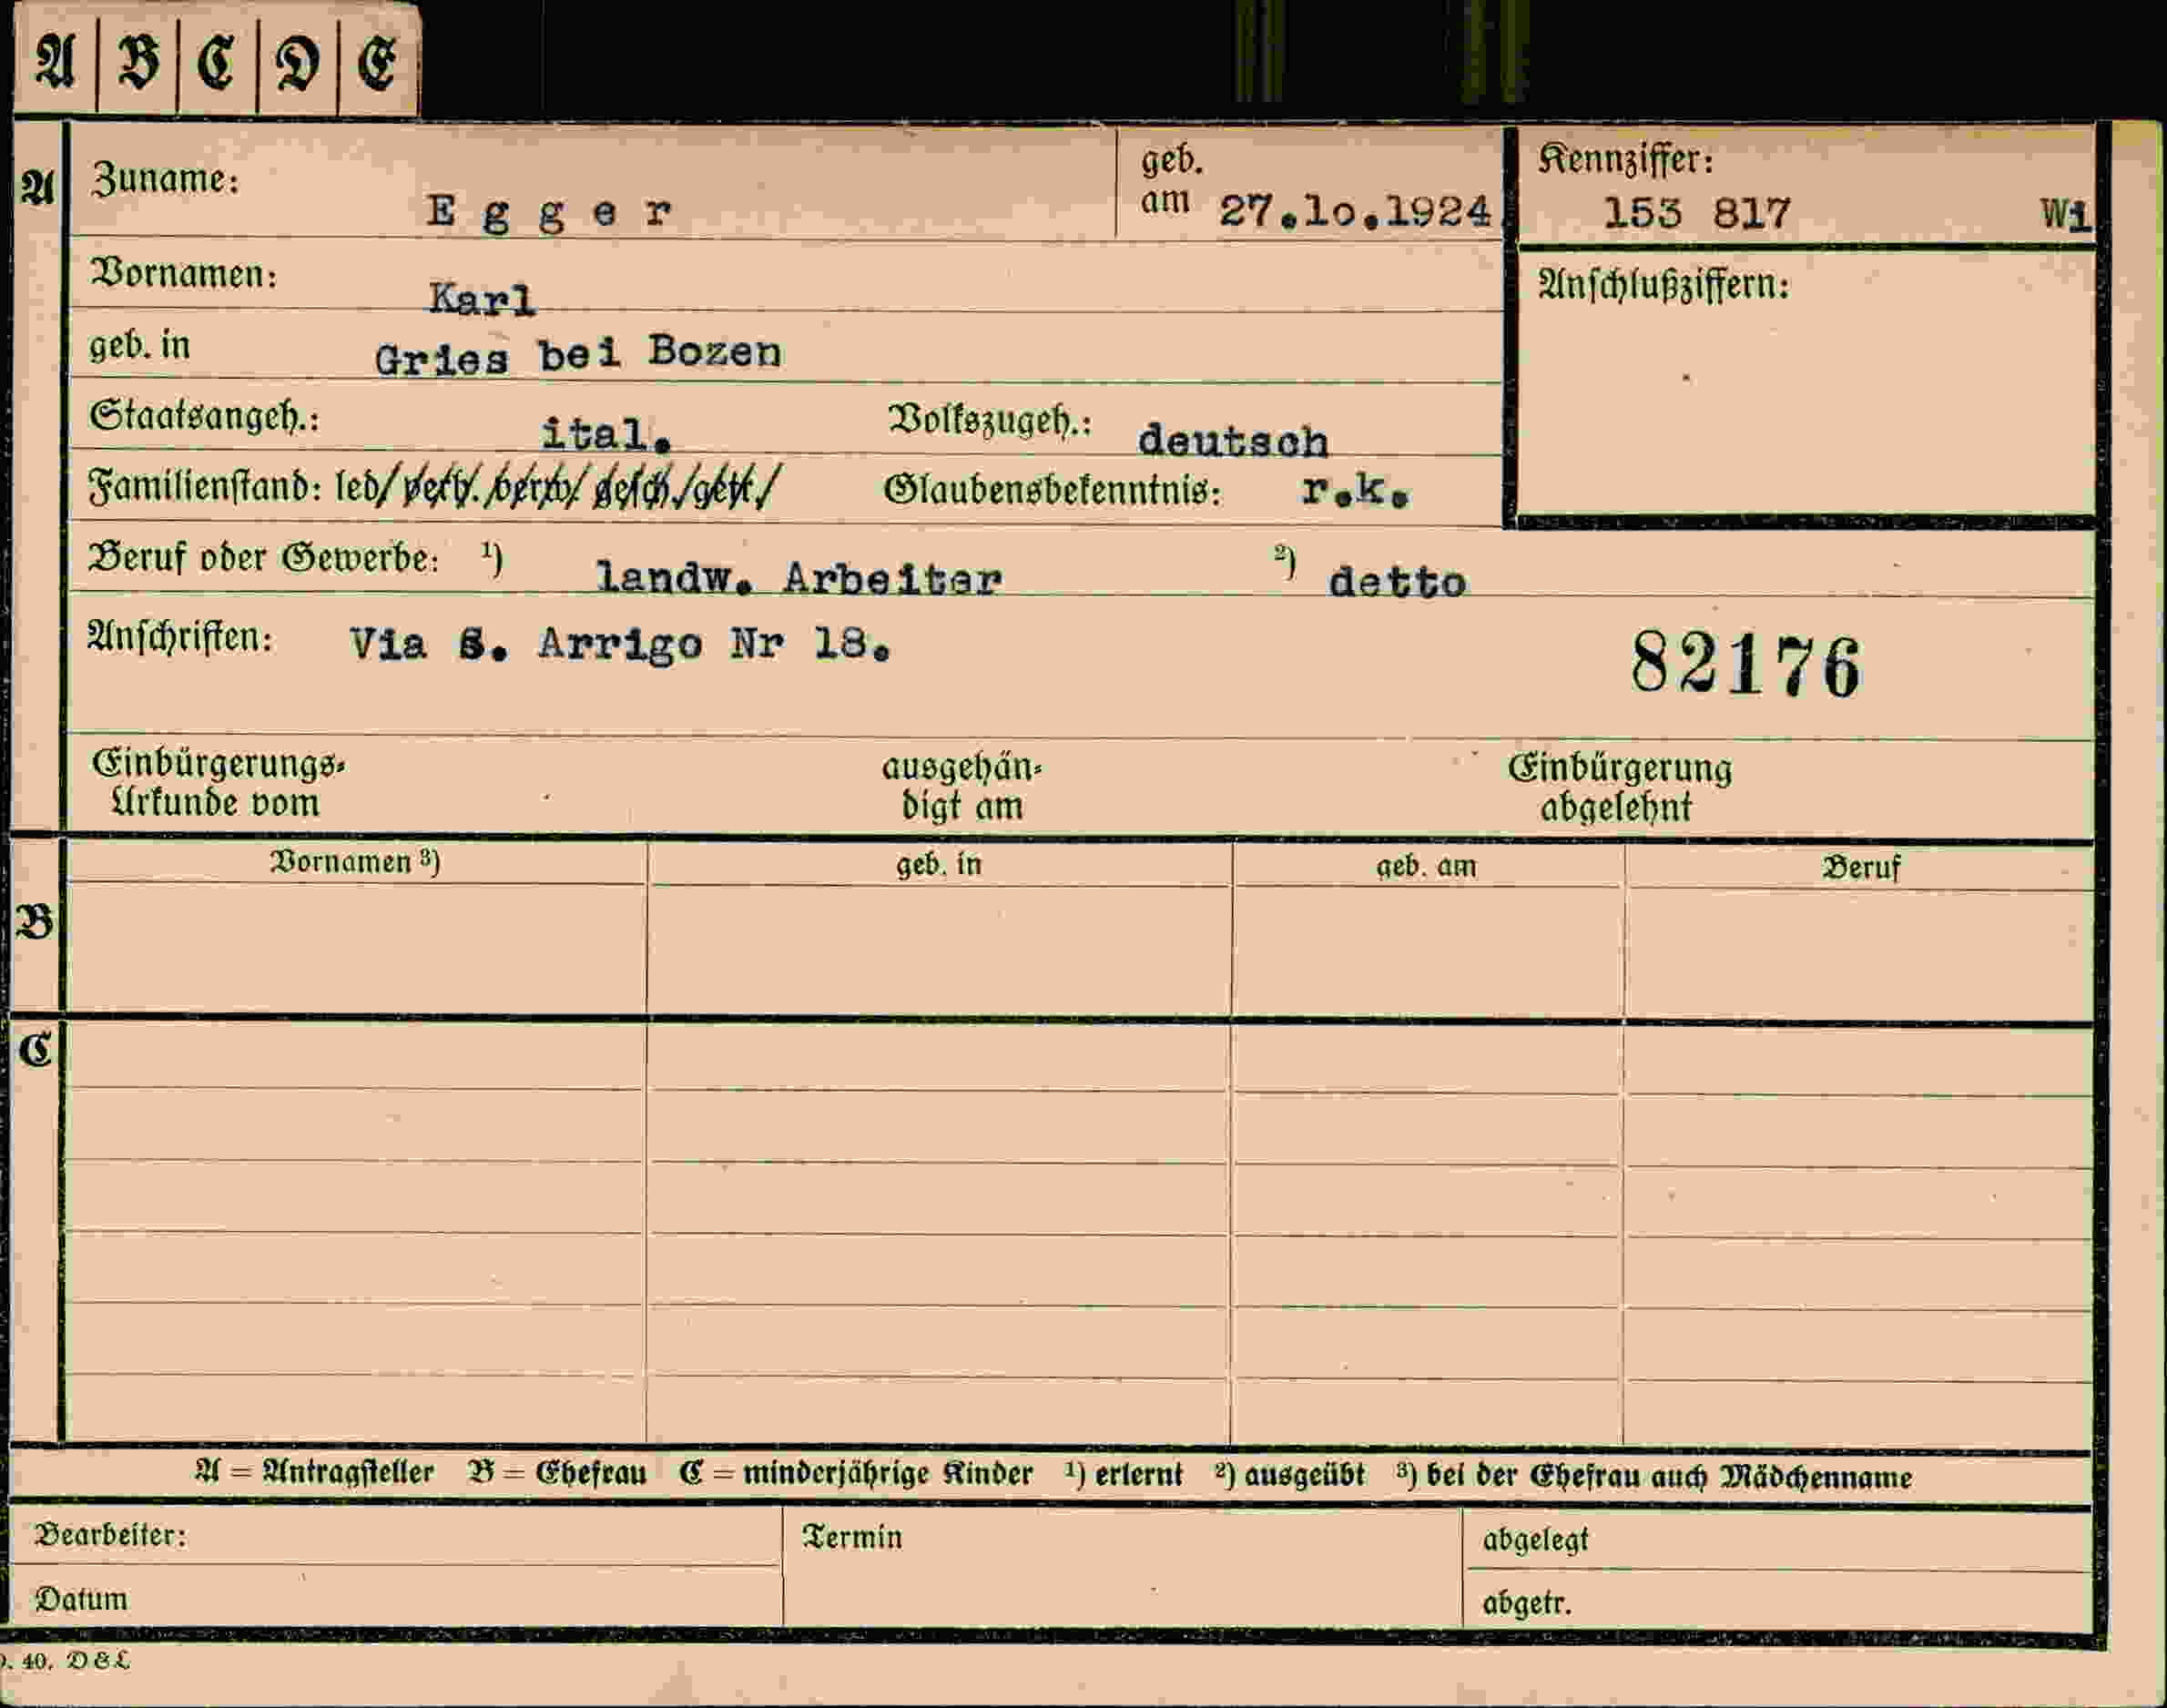 A B C D E
A Zuname: Egger geb. am 27.10.1924 Kennziffer: 153 817 Wi
Vornamen: Karl Anschlußziffern:
geb. in Gries bei Bozen
Staatsangeh.: ital. Volkszugeh.: deutsch
Familienstand: led/ verh. /verw/ gesch./getr./ Glaubensbekenntnis: r.k.
Beruf oder Gewerbe: ¹) landw. Arbeiter ²) detto
Anschriften: Via S. Arrigo Nr 18. 82176
Einbürgerungs- ausgehän- Einbürgerung
Urkunde vom digt am abgelehnt
Vornamen ³) geb. in geb. am Beruf
B
C
A = Antragsteller B = Ehefrau C = minderjährige Kinder ¹) erlernt ²) ausgeübt ³) bei der Ehefrau auch Mädchenname
Bearbeiter: Termin abgelegt
Datum abgetr.
40. D&L